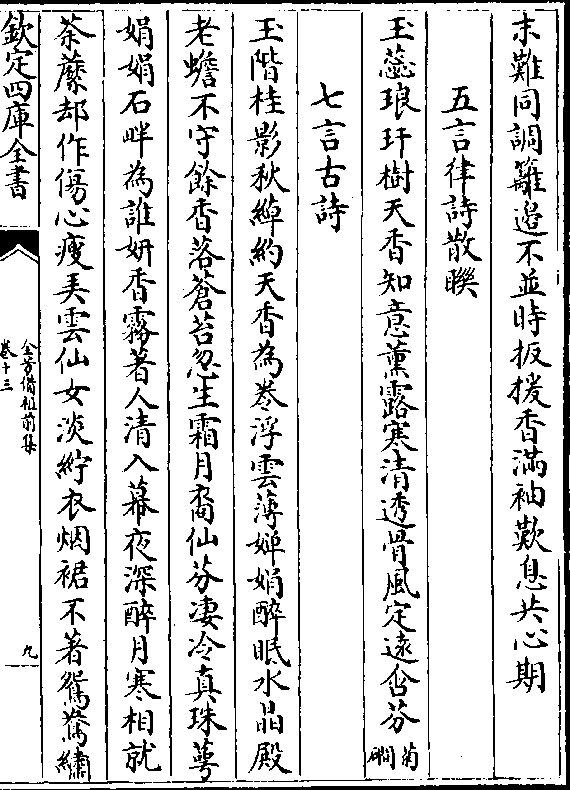 末難同調籬邉不並時扳援香滿袖歎息共心期
五言律詩散聨
玉蘂琅玕樹天香知意薰露寒清透骨風定逺含芬菊磵
七言古詩
玉階桂影秋綽約天香為卷浮雲薄嬋娟醉眠水晶殿
老蟾不守餘香落蒼苔忽生霜月裔仙芬凄冷真珠萼
娟娟石畔為誰妍香霧著人清入幕夜深醉月寒相就
荼䕷却作傷心瘦弄雲仙女淡紵衣烟裙不著鴛鴦繡
欽定四庫全書
全芳備祖前集
卷十三
九